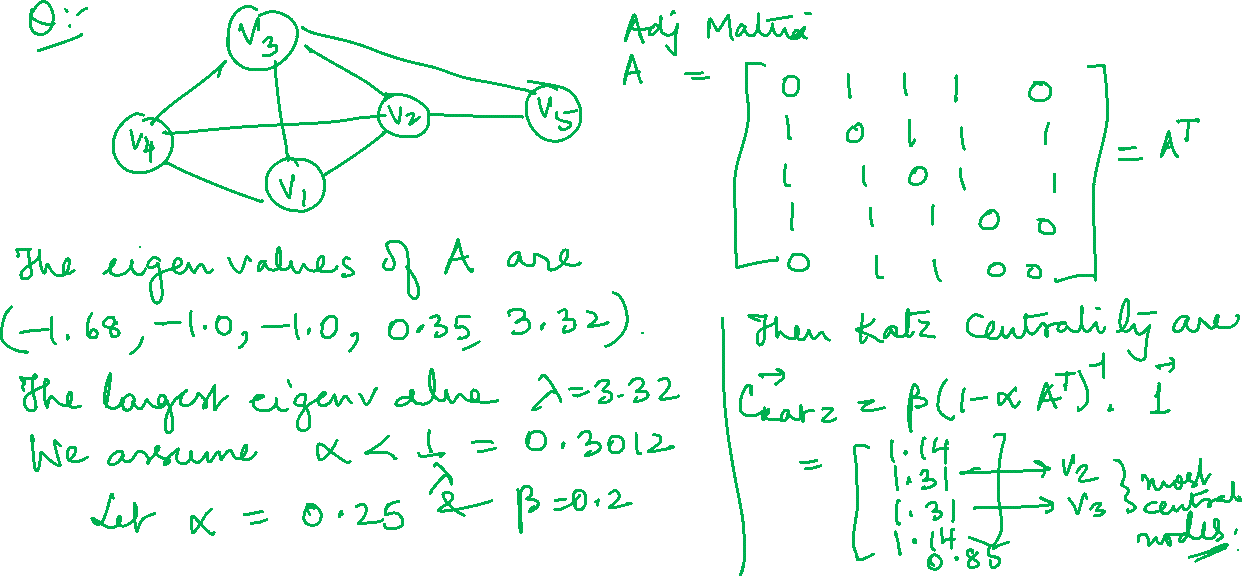 Q:-
V3
V4
V2
V5
V1
Adj Matrix
A = [ 0 1 1 1 0
1 0 1 1 1
1 1 0 1 1
1 1 1 0 0
0 1 1 0 0 ] = A^T
The eigen values of A are
(-1.68, -1.0, -1.0, 0.35, 3.32).
The largest eigenvalue λ=3.32
We assume α < 1/λ = 0.3012
Let α = 0.25 & β=0.2
Then Katz Centrality are
C⃗katz = β(1-α A^T)^-1 . 1⃗
= [ 1.14
1.31 → V2
1.31 → V3 } most central nodes.
1.14
0.85 ]